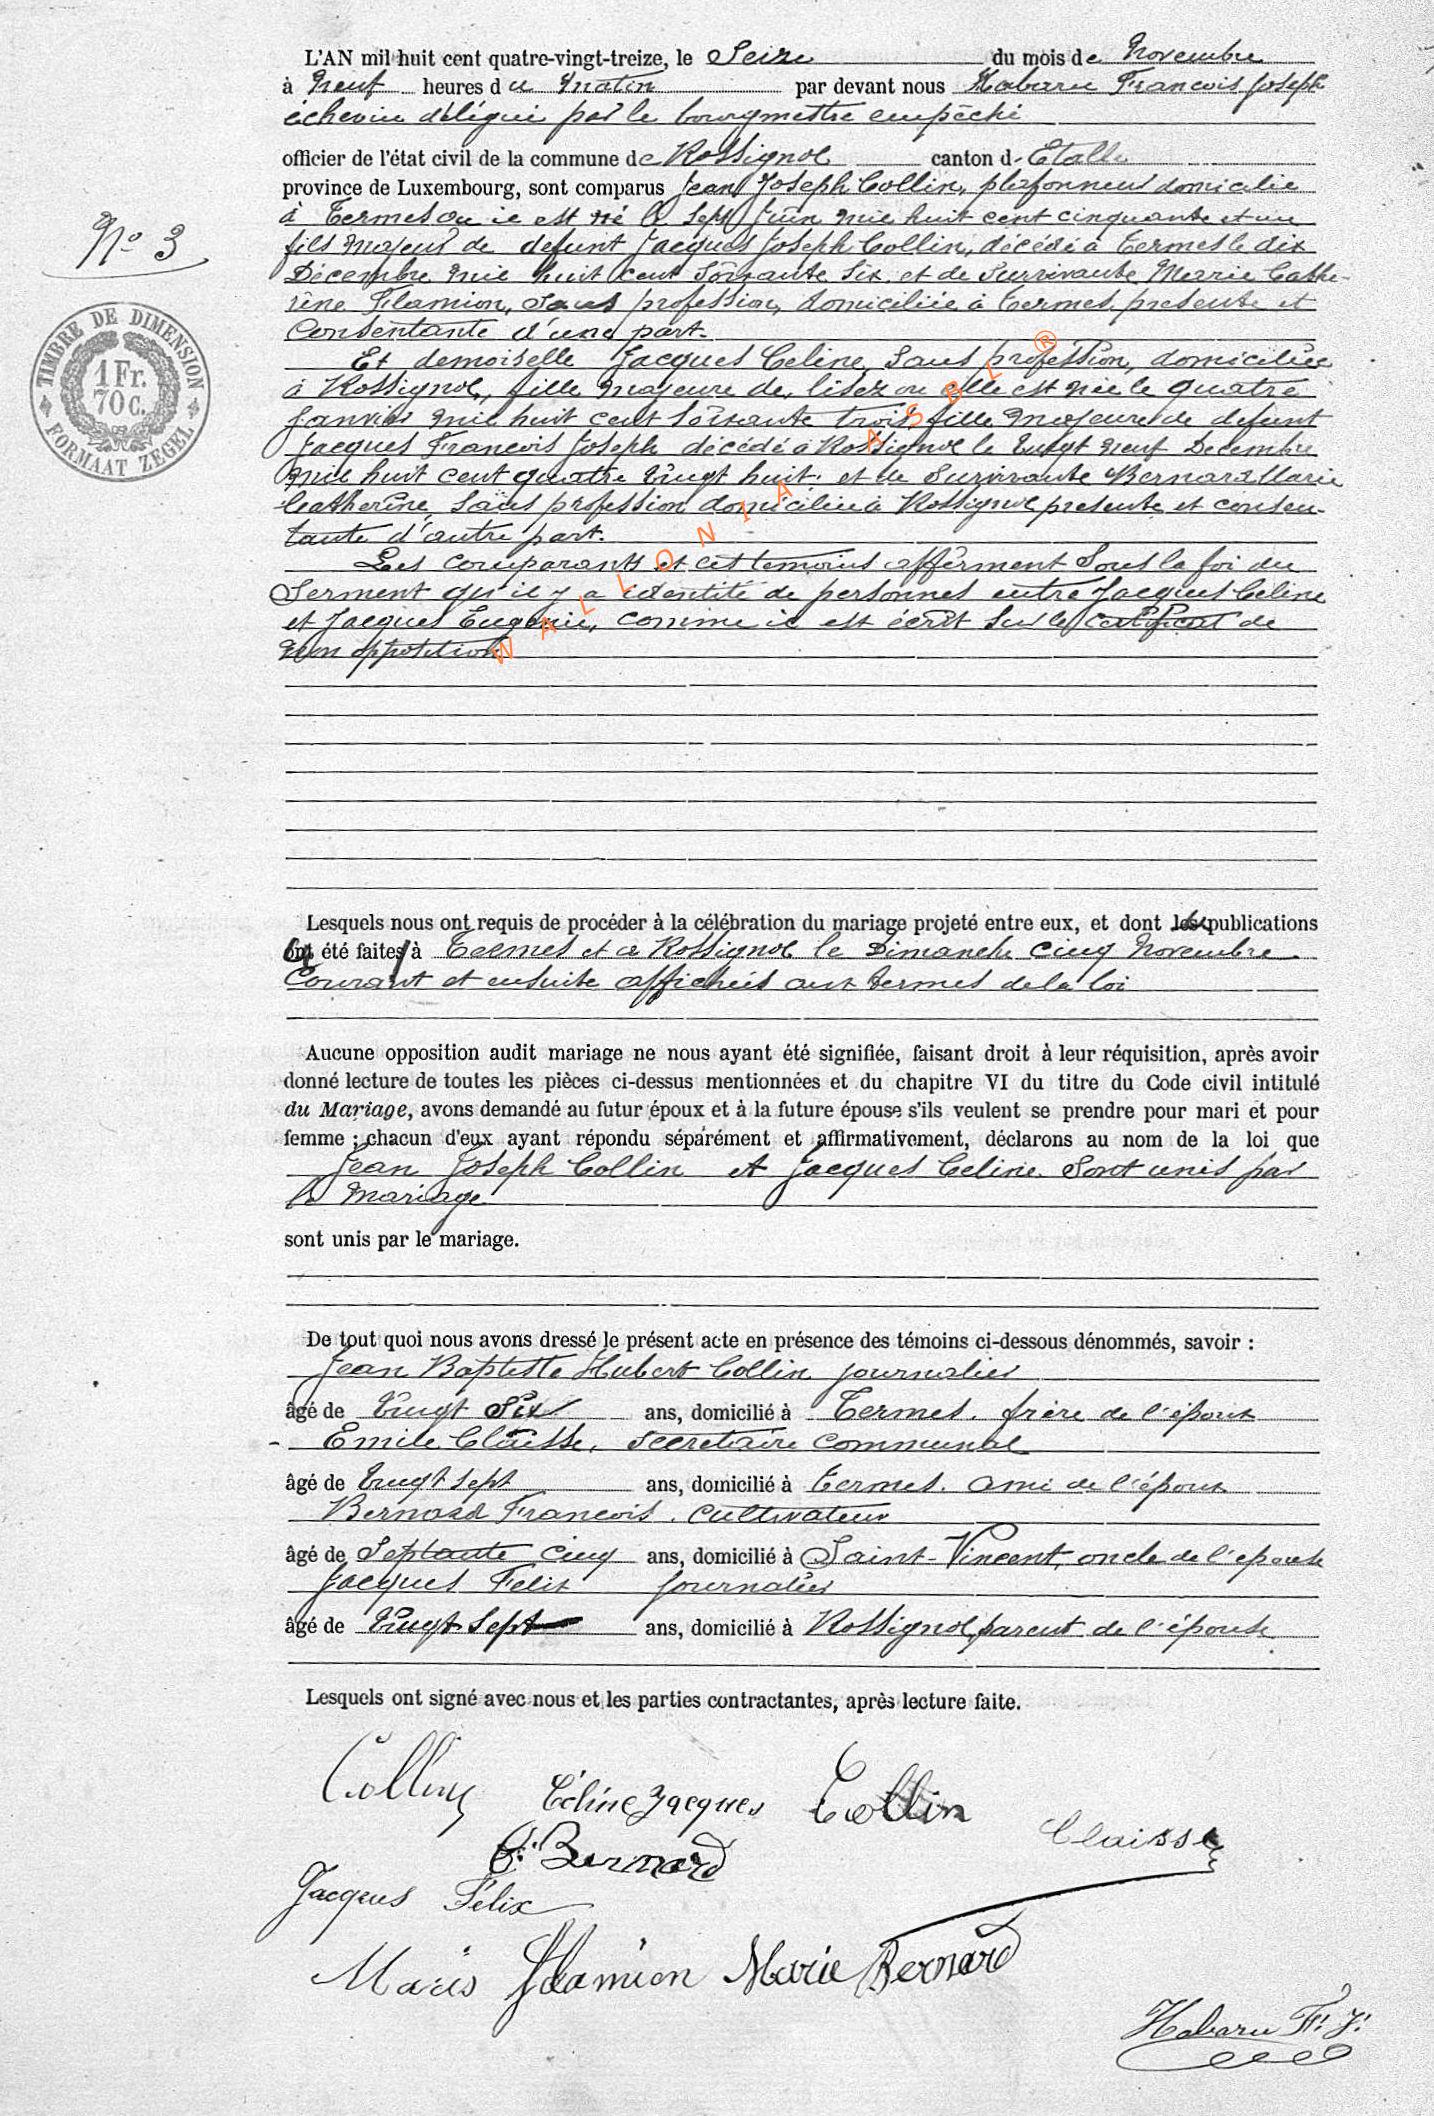 L'AN mil huit cent quatre-vingt-treize, le Seize du mois de Novembre
à Neuf heures du Matin par devant nous Habaru Francois Joseph
échevin délégué par le bourgmestre empêché
officier de l'état civil de la commune de Rossignol canton d' Etalle
province de Luxembourg, sont comparus Jean Joseph Collin, plafonneur domicilié
à Termes ou il est né le sept Juin mil huit cent cinquante et un
fils majeur de defunt Jacques Joseph Collin, décédé à Termes le dix
Décembre mil huit cent soixante six et de survivante Marie Cathe-
rine Flamion, sans profession, domiciliée à Termes presente et
Consentante d'une part.
Et demoiselle Jacques Celine, sans profession, domiciliée
à Rossignol, fille majeure de, lisez ou elle est née le quatre
Janvier mil huit cent soixante trois fille majeure de defunt
Jacques Francois Joseph décédé à Rossignol le vingt neuf Decembre
mil huit cent quatre vingt huit et de survivante Bernard Marie
Catherine, sans profession domiciliée à Rossignol presente et consen-
tante d'autre part.
Les comparants et cet temoins affirment sous la foi du
Serment qu'il y a identité de personnes entre Jacques Celine
et Jacques Eugenie, comme il est écrit sur le certificat de
non opposition
N° 3
TIMBRE DE DIMENSION
1 Fr.
70 C.
FORMAAT ZEGEL
WALLONIA ASBL ®
Lesquels nous ont requis de procéder à la célébration du mariage projeté entre eux, et dont les publications
ont été faites à Termes et a Rossignol le Dimanche cinq Novembre
Courant et ensuite affichées aux termes de la loi
Aucune opposition audit mariage ne nous ayant été signifiée, faisant droit à leur réquisition, après avoir
donné lecture de toutes les pièces ci-dessus mentionnées et du chapitre VI du titre du Code civil intitulé
du Mariage, avons demandé au futur époux et à la future épouse s'ils veulent se prendre pour mari et pour
femme ; chacun d'eux ayant répondu séparément et affirmativement, déclarons au nom de la loi que
Jean Joseph Collin et Jacques Celine sont unis par
le mariage
sont unis par le mariage.
De tout quoi nous avons dressé le présent acte en présence des témoins ci-dessous dénommés, savoir :
Jean Baptiste Hubert Collin journalier
âgé de vingt six ans, domicilié à Termes. frère de l'époux
Emile Claisse, secretaire communal
âgé de vingt sept ans, domicilié à Termes. ami de l'époux
Bernard Francois. cultivateur
âgé de Septante cinq ans, domicilié à Saint-Vincent, oncle de l'epouse
Jacques Felix journalier
âgé de vingt sept ans, domicilié à Rossignol, parent de l'épouse.
Lesquels ont signé avec nous et les parties contractantes, après lecture faite.
Collin Céline Jacques Collin Claisse
Bernard
Jacques Félix
Marie Flamion Marie Bernard
Habaru F. J.